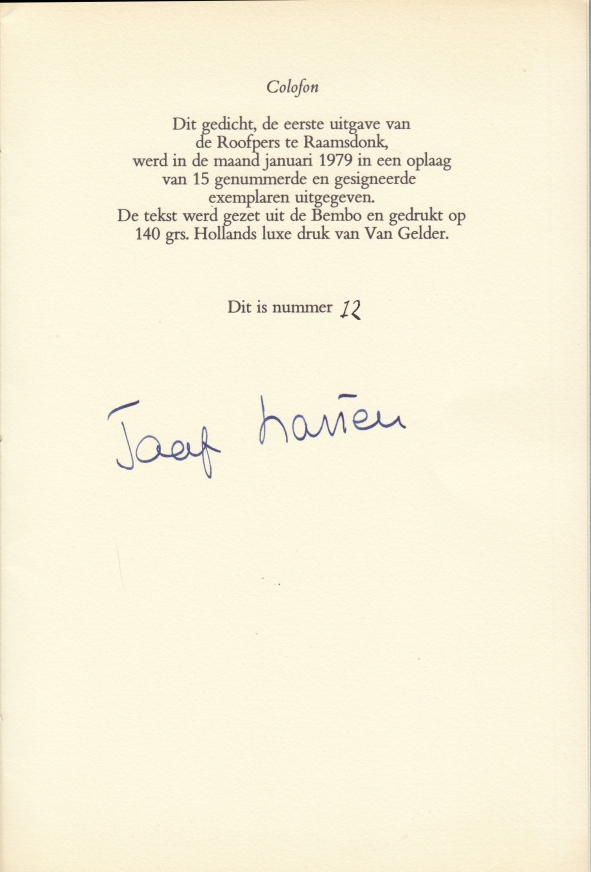 Colofon
Dit gedicht, de eerste uitgave van
de Roofpers te Raamsdonk,
werd in de maand januari 1979 in een oplaag
van 15 genummerde en gesigneerde
exemplaren uitgegeven.
De tekst werd gezet uit de Bembo en gedrukt op
140 grs. Hollands luxe druk van Van Gelder.
Dit is nummer 12
Jaap